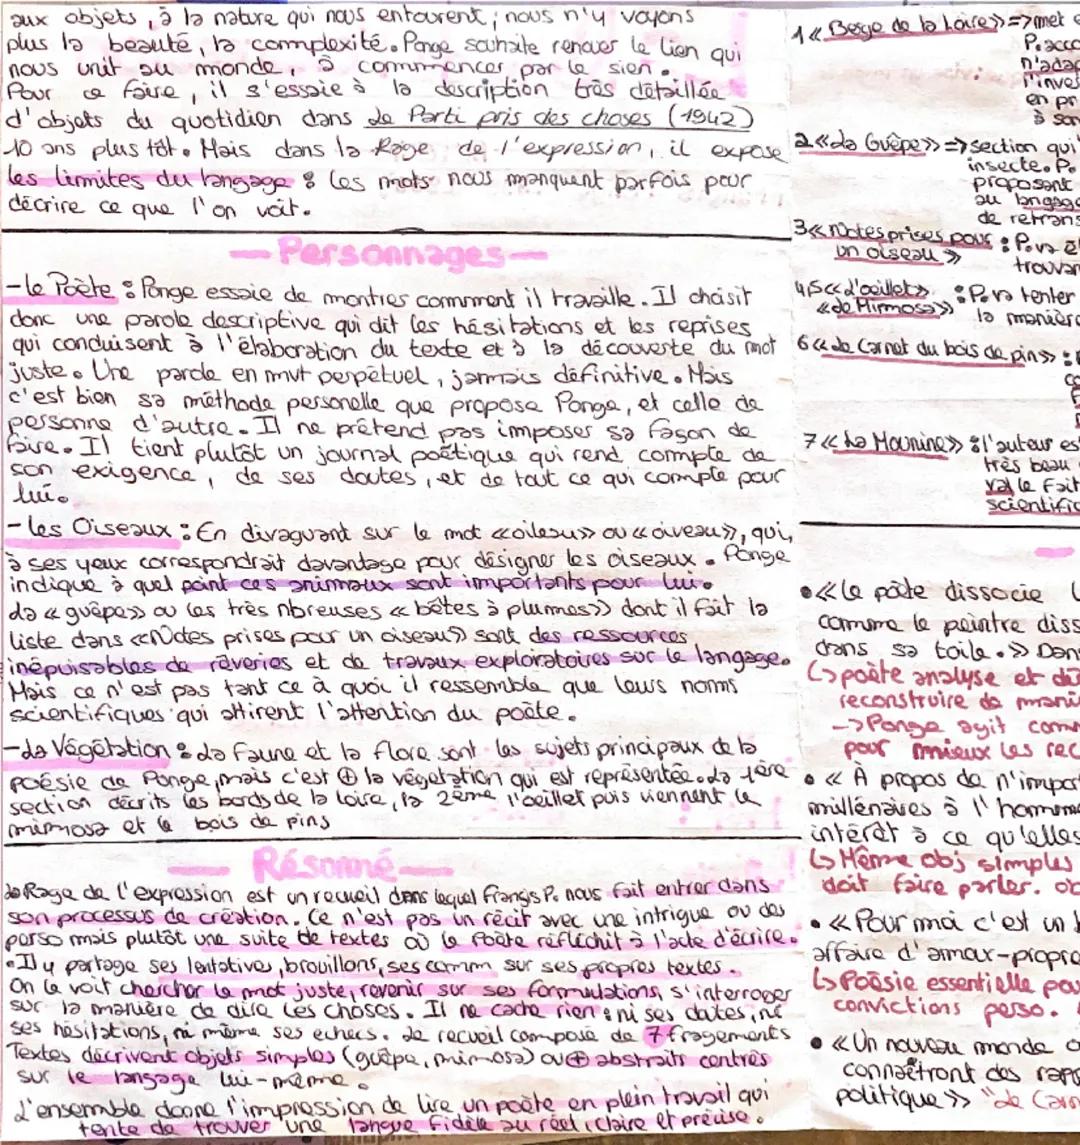 aux objets, à la nature qui nous entourent ; nous n'y voyons
plus la beauté, la complexité. Ponge souhaite renouer le lien qui
nous unit au monde, à commencer par le sien.
Pour ce faire, il s'essaie à la description très détaillée
d'objets du quotidien dans Le Parti pris des choses (1942)
10 ans plus tôt. Mais dans la Rage de l'expression, il expose
les limites du langage : les mots nous manquent parfois pour
décrire ce que l'on voit.
— Personnages —
- Le Poète : Ponge essaie de montrer comment il travaille. Il choisit
donc une parole descriptive qui dit les hésitations et les reprises
qui conduisent à l'élaboration du texte et à la découverte du mot
juste. Une parole en mvt perpétuel, jamais définitive. Mais
c'est bien sa méthode personelle que propose Ponge, et celle de
personne d'autre. Il ne prétend pas imposer sa façon de
faire. Il tient plutôt un journal poétique qui rend compte de
son exigence, de ses doutes, et de tout ce qui compte pour
lui.
- Les Oiseaux : En divaguant sur le mot «oileau» ou «oiveau», qui,
à ses yeux correspondrait davantage pour désigner les oiseaux. Ponge
indique à quel point ces animaux sont importants pour lui.
La «guêpe» ou les très nbreuses «bêtes à plumes» dont il fait la
liste dans «Notes prises pour un oiseau» sont des ressources
inépuisables de rêveries et de travaux exploratoires sur le langage.
Mais ce n'est pas tant ce à quoi il ressemble que leurs noms
scientifiques qui attirent l'attention du poète.
- La Végétation : La faune et la flore sont les sujets principaux de la
poésie de Ponge, mais c'est ⊕ la végétation qui est représentée. La 1ère
section décrits les bords de la Loire, la 2ème l'oeillet puis viennent le
mimosa et le bois de pins
— Résumé —
La Rage de l'expression est un recueil dans lequel Francis P. nous fait entrer dans
son processus de création. Ce n'est pas un récit avec une intrigue ou des
perso mais plutôt une suite de textes où le Poète réfléchit à l'acte d'écrire.
• Il y partage ses tentatives, brouillons, ses comm sur ses propres textes.
On le voit chercher le mot juste, revenir sur ses formulations, s'interroger
sur la manière de dire les choses. Il ne cache rien : ni ses dates, ni
ses hésitations, ni même ses echecs. Le recueil composé de 7 fragements
Textes décrivent objets simples (guêpe, mimosa) ou ⊕ abstraits centrés
sur le langage lui-même.
L'ensemble donne l'impression de lire un poète en plein travail qui
tente de trouver une langue fidèle au réel, claire et précise.
1 «Berge de la Loire» => met
P. acc
n'adap
l'inves
en pr
à son
2 «La Guêpe» => section qui
insecte. P.
proposant
au langag
de retrans
3 «Notes prises pour : P. va
un oiseau» trouvan
4,5 «L'oeillet» : P. va tenter
«Le Mimosa» la manièr
6 «Le Carnet du bois de pins» :
7 «La Mounine» : l'auteur es
très beau
val le fait
scientific
• «Le poète dissocie
comme le peintre diss
dans sa toile.» Dan
↳ poète analyse et
reconstruire de mani
-> Ponge agit com
pour mieux les rec
• «À propos de n'impor
millénaires à l'homm
intérêt à ce qu'elles
↳ Même obj simples
doit faire parler.
• «Pour moi c'est un
affaire d'amour-propre
↳ Poésie essentielle pou
convictions perso.
• «Un nouveau monde o
connaîtront des rapp
politique» "Le Carn